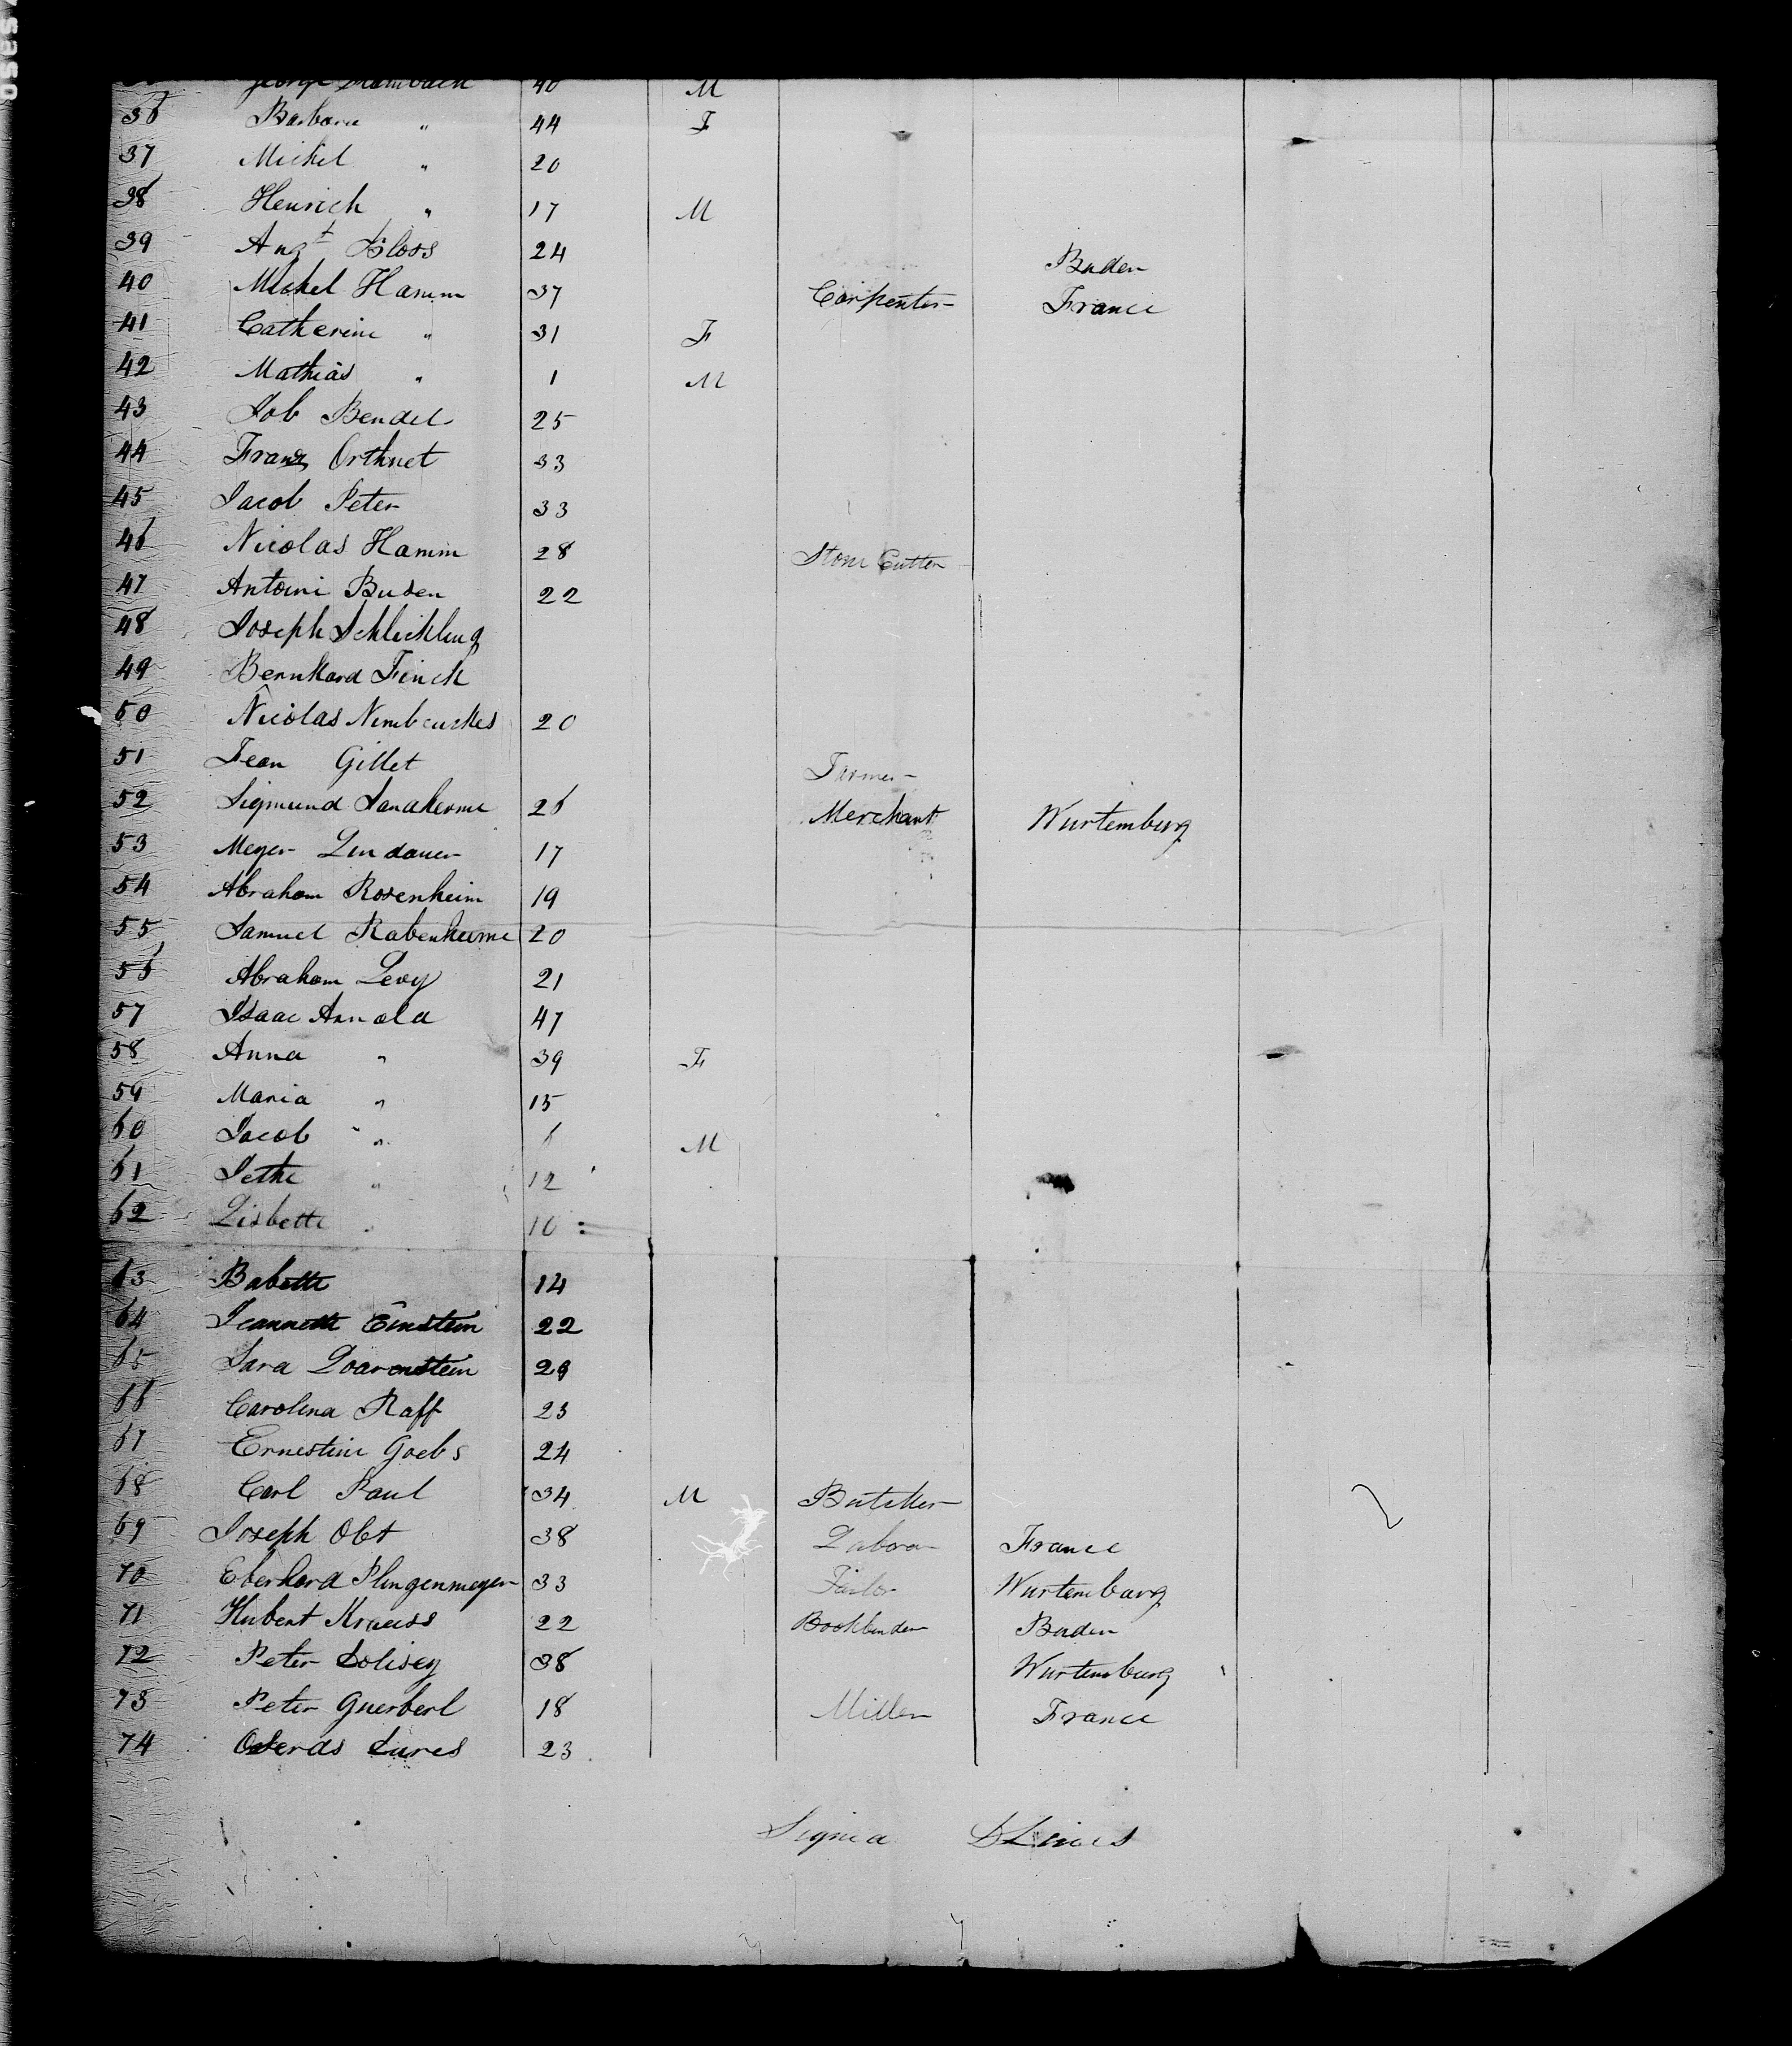 George 40 M
36 Barbara " 44 F
37 Michel " 20
38 Henrich " 17 M
39 Augt Kloss 24 Baden
40 Michel Hamm 37 Carpenter France
41 Catherine " 31 F
42 Mathias " 1 M
43 Job Bendel 25
44 Franz Orthnet 33
45 Jacob Peter 33
46 Nicolas Hamm 28 Stone Cutter
47 Antoine Busen 22
48 Joseph Schlickling
49 Bernhard Finck
50 Nicolas 20
51 Jean Gillet Farmer
52 Sigmund 26 Merchant Wurtemburg
53 Meyer Lindauer 17
54 Abraham Rosenheim 19
55 Samuel Rabenheime 20
56 Abraham Levy 21
57 Isaac Arnold 47
58 Anna " 39 F
59 Maria " 15
60 Jacob " 6 M
61 Jethe " 12
62 Lisbette " 10
63 Babette 14
64 Jeannette Einstein 22
65 Sara 29
66 Carolina Raff 23
67 Ernestine Goebs 24
68 Carl Paul 34 M Butcher
69 Joseph Obt 38 Labor France
70 Eberhard Plingenmeyer 33 Tailor Wurtemburg
71 Hubert Krauss 22 Bookbinder Baden
72 Peter Solisey 38 Wurtemburg
73 Peter Guerberl 18 Miller France
74 23
Signed